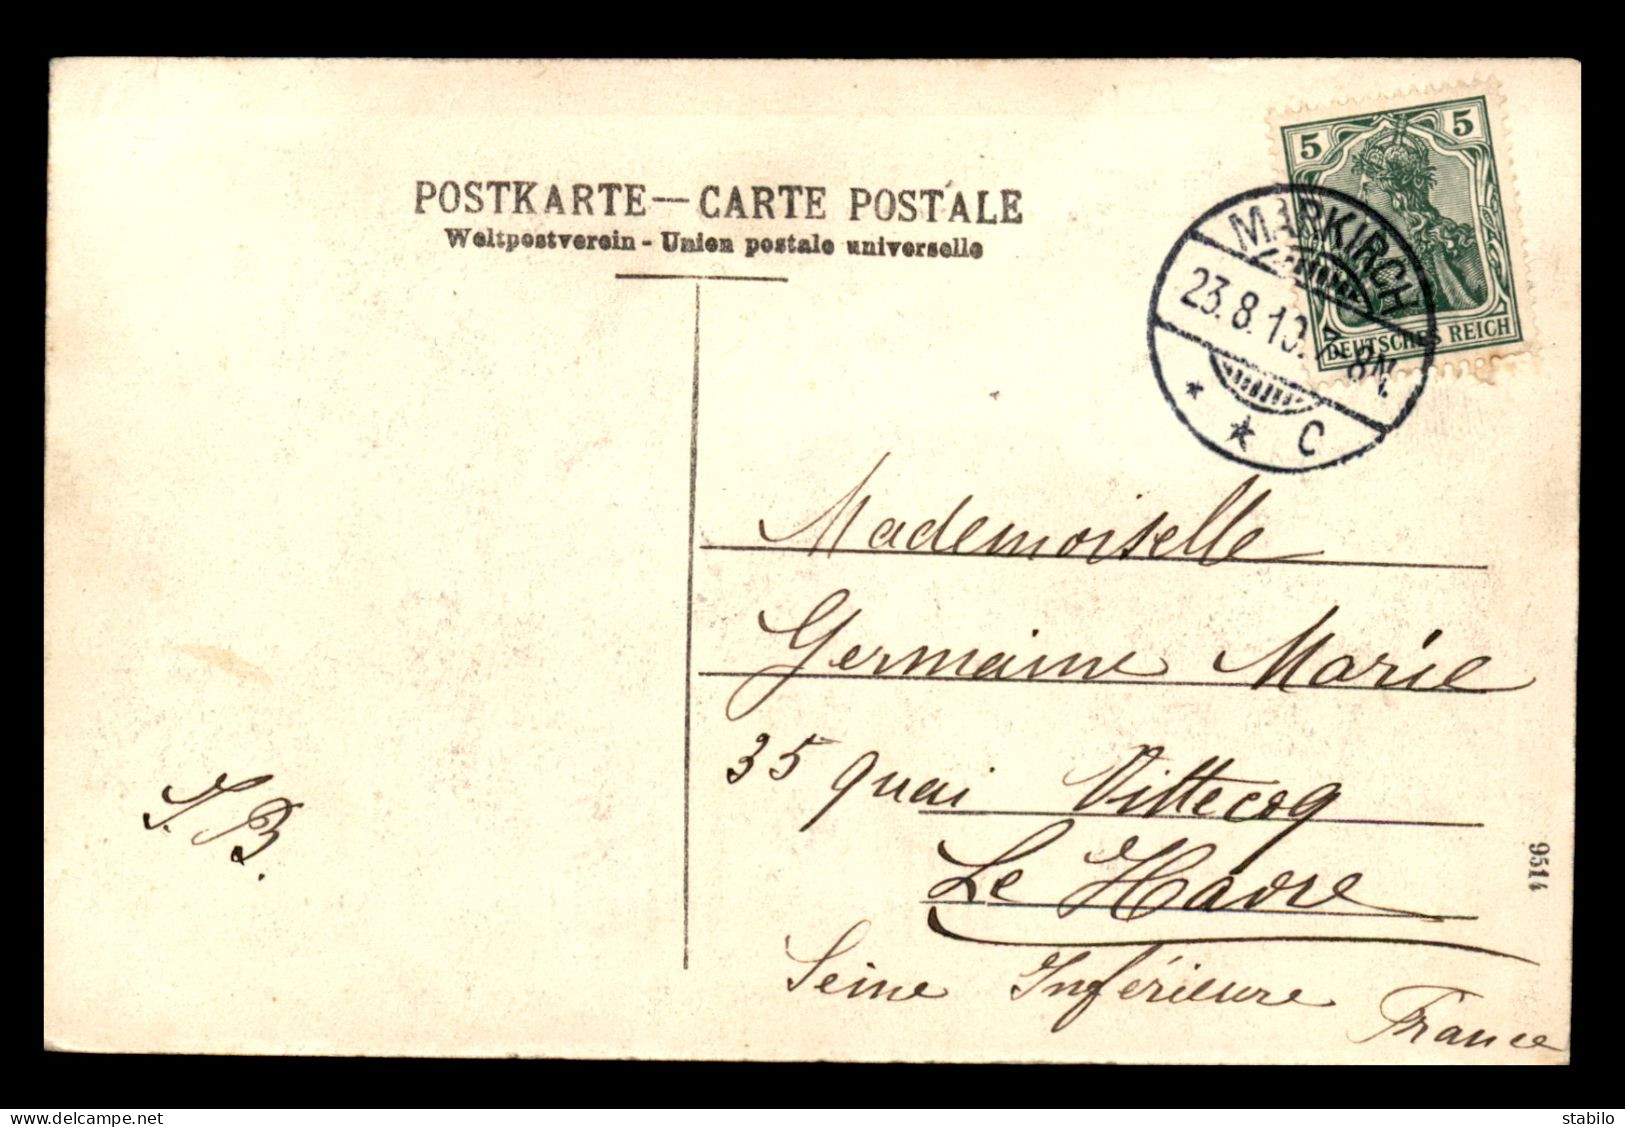 POSTKARTE — CARTE POSTALE
Weltpostverein - Union postale universelle
5 5
DEUTSCHES REICH
MARKIRCH
23.8.10. 7-8N.
* * C
Mademoiselle
Germaine Marie
35 quai Vittecoq
Le Havre
Seine Inférieure
France
J. B.
9514
delcampe.net
stabilo